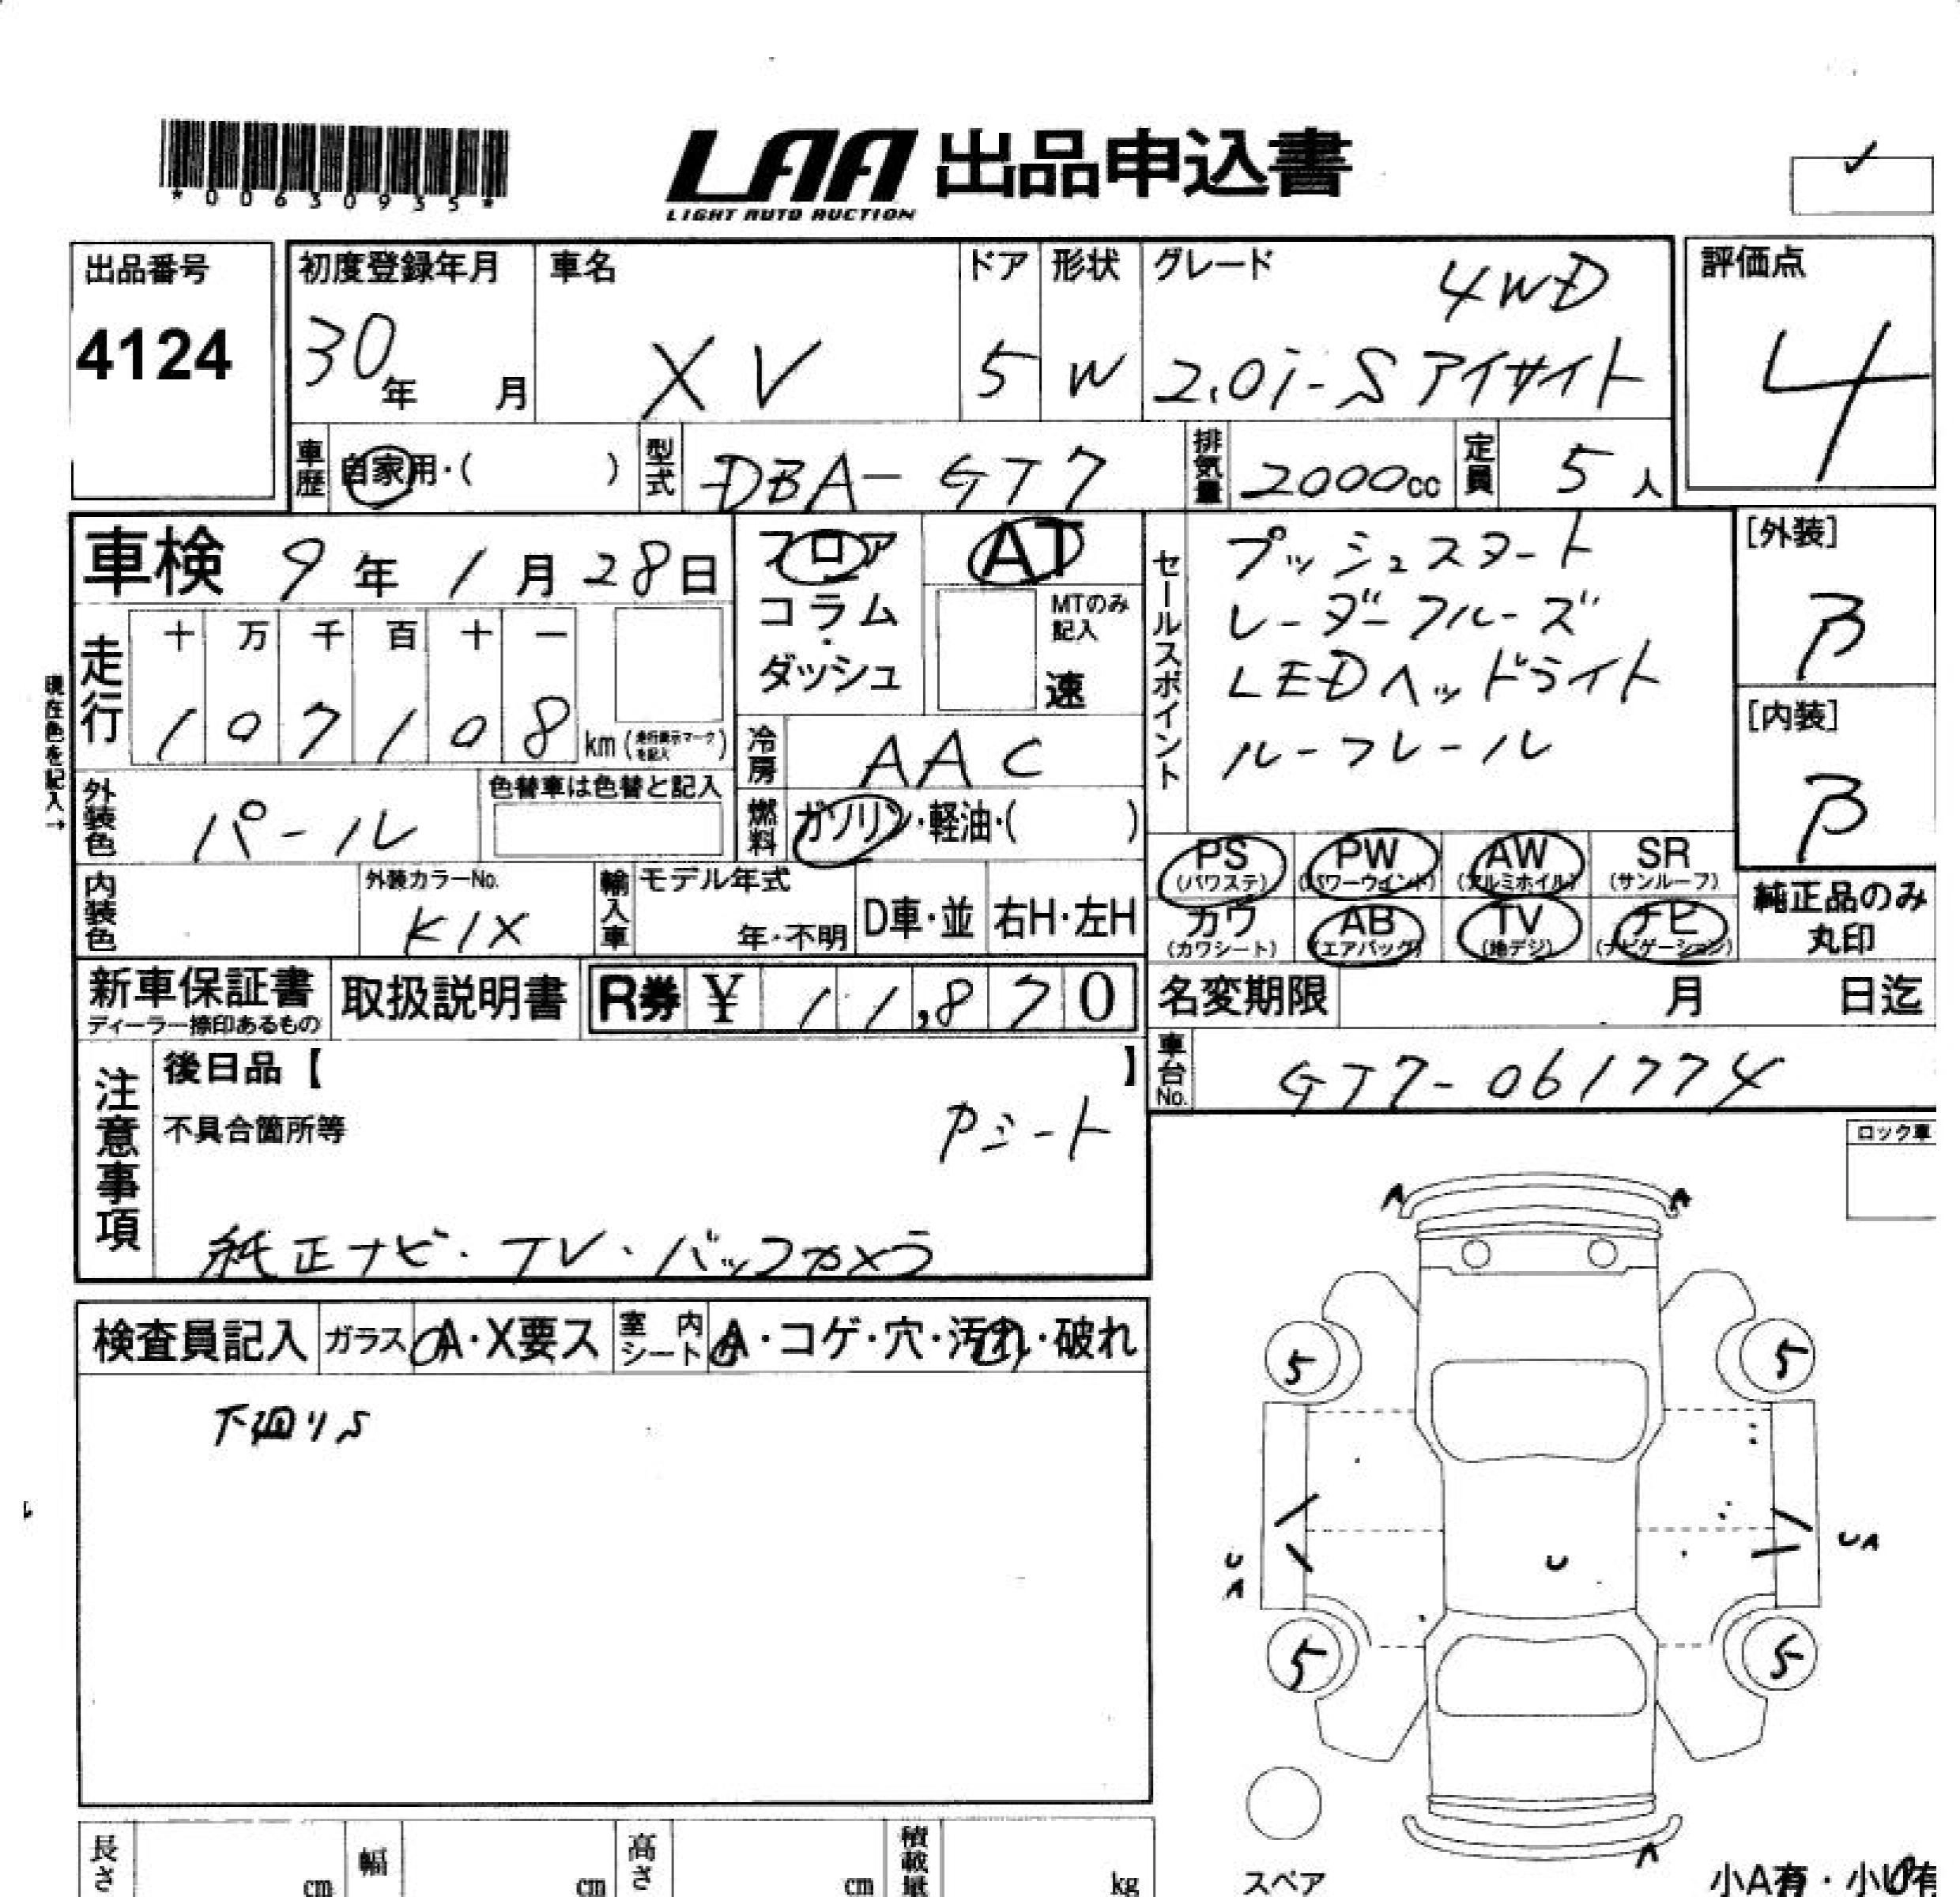 *00630955*
LAA 出品申込書
LIGHT AUTO AUCTION
✓
出品番号 4124
初度登録年月 30年 月
車名 XV
ドア 5
形状 W
グレード 4WD
2.0i-S アイサイト
評価点 4
車歴 自家用・( )
型式 DBA-GT7
排気量 2000cc
定員 5人
車検 9年1月28日
フロア
コラム
・
ダッシュ
AT
MTのみ
記入
速
セールスポイント
プッシュスタート
レーダークルーズ
LEDヘッドライト
ルーフレール
[外装] B
[内装] B
現在色を記入→
走行
十 万 千 百 十 一
1 0 7 1 0 8 km(走行表示マークを記入)
冷房 AAC
外装色 パール
色替車は色替と記入
燃料 ガソリン・軽油・( )
PS (パワステ)
PW (パワーウインド)
AW (アルミホイル)
SR (サンルーフ)
カワ (カワシート)
AB (エアバッグ)
TV (地デジ)
ナビ (ナビゲーション)
純正品のみ
丸印
内装色
外装カラーNo. K1X
輸入車
モデル年式
年・不明
D車・並
右H・左H
新車保証書
ディーラー捺印あるもの
取扱説明書
R券 ¥ 11,870
名変期限 月 日迄
車台No. GT7-061774
注意事項
後日品【 】
不具合箇所等
Pシート
純正ナビ・TV・バックカメラ
ロック車
検査員記入
ガラス A・X要ス
室内シート A・コゲ・穴・汚れ・破れ
下回りS
A A
5 5
U
A
U
UA
5 5
A
スペア
小A有・小U有
長さ cm
幅 cm
高さ cm
積載量 kg